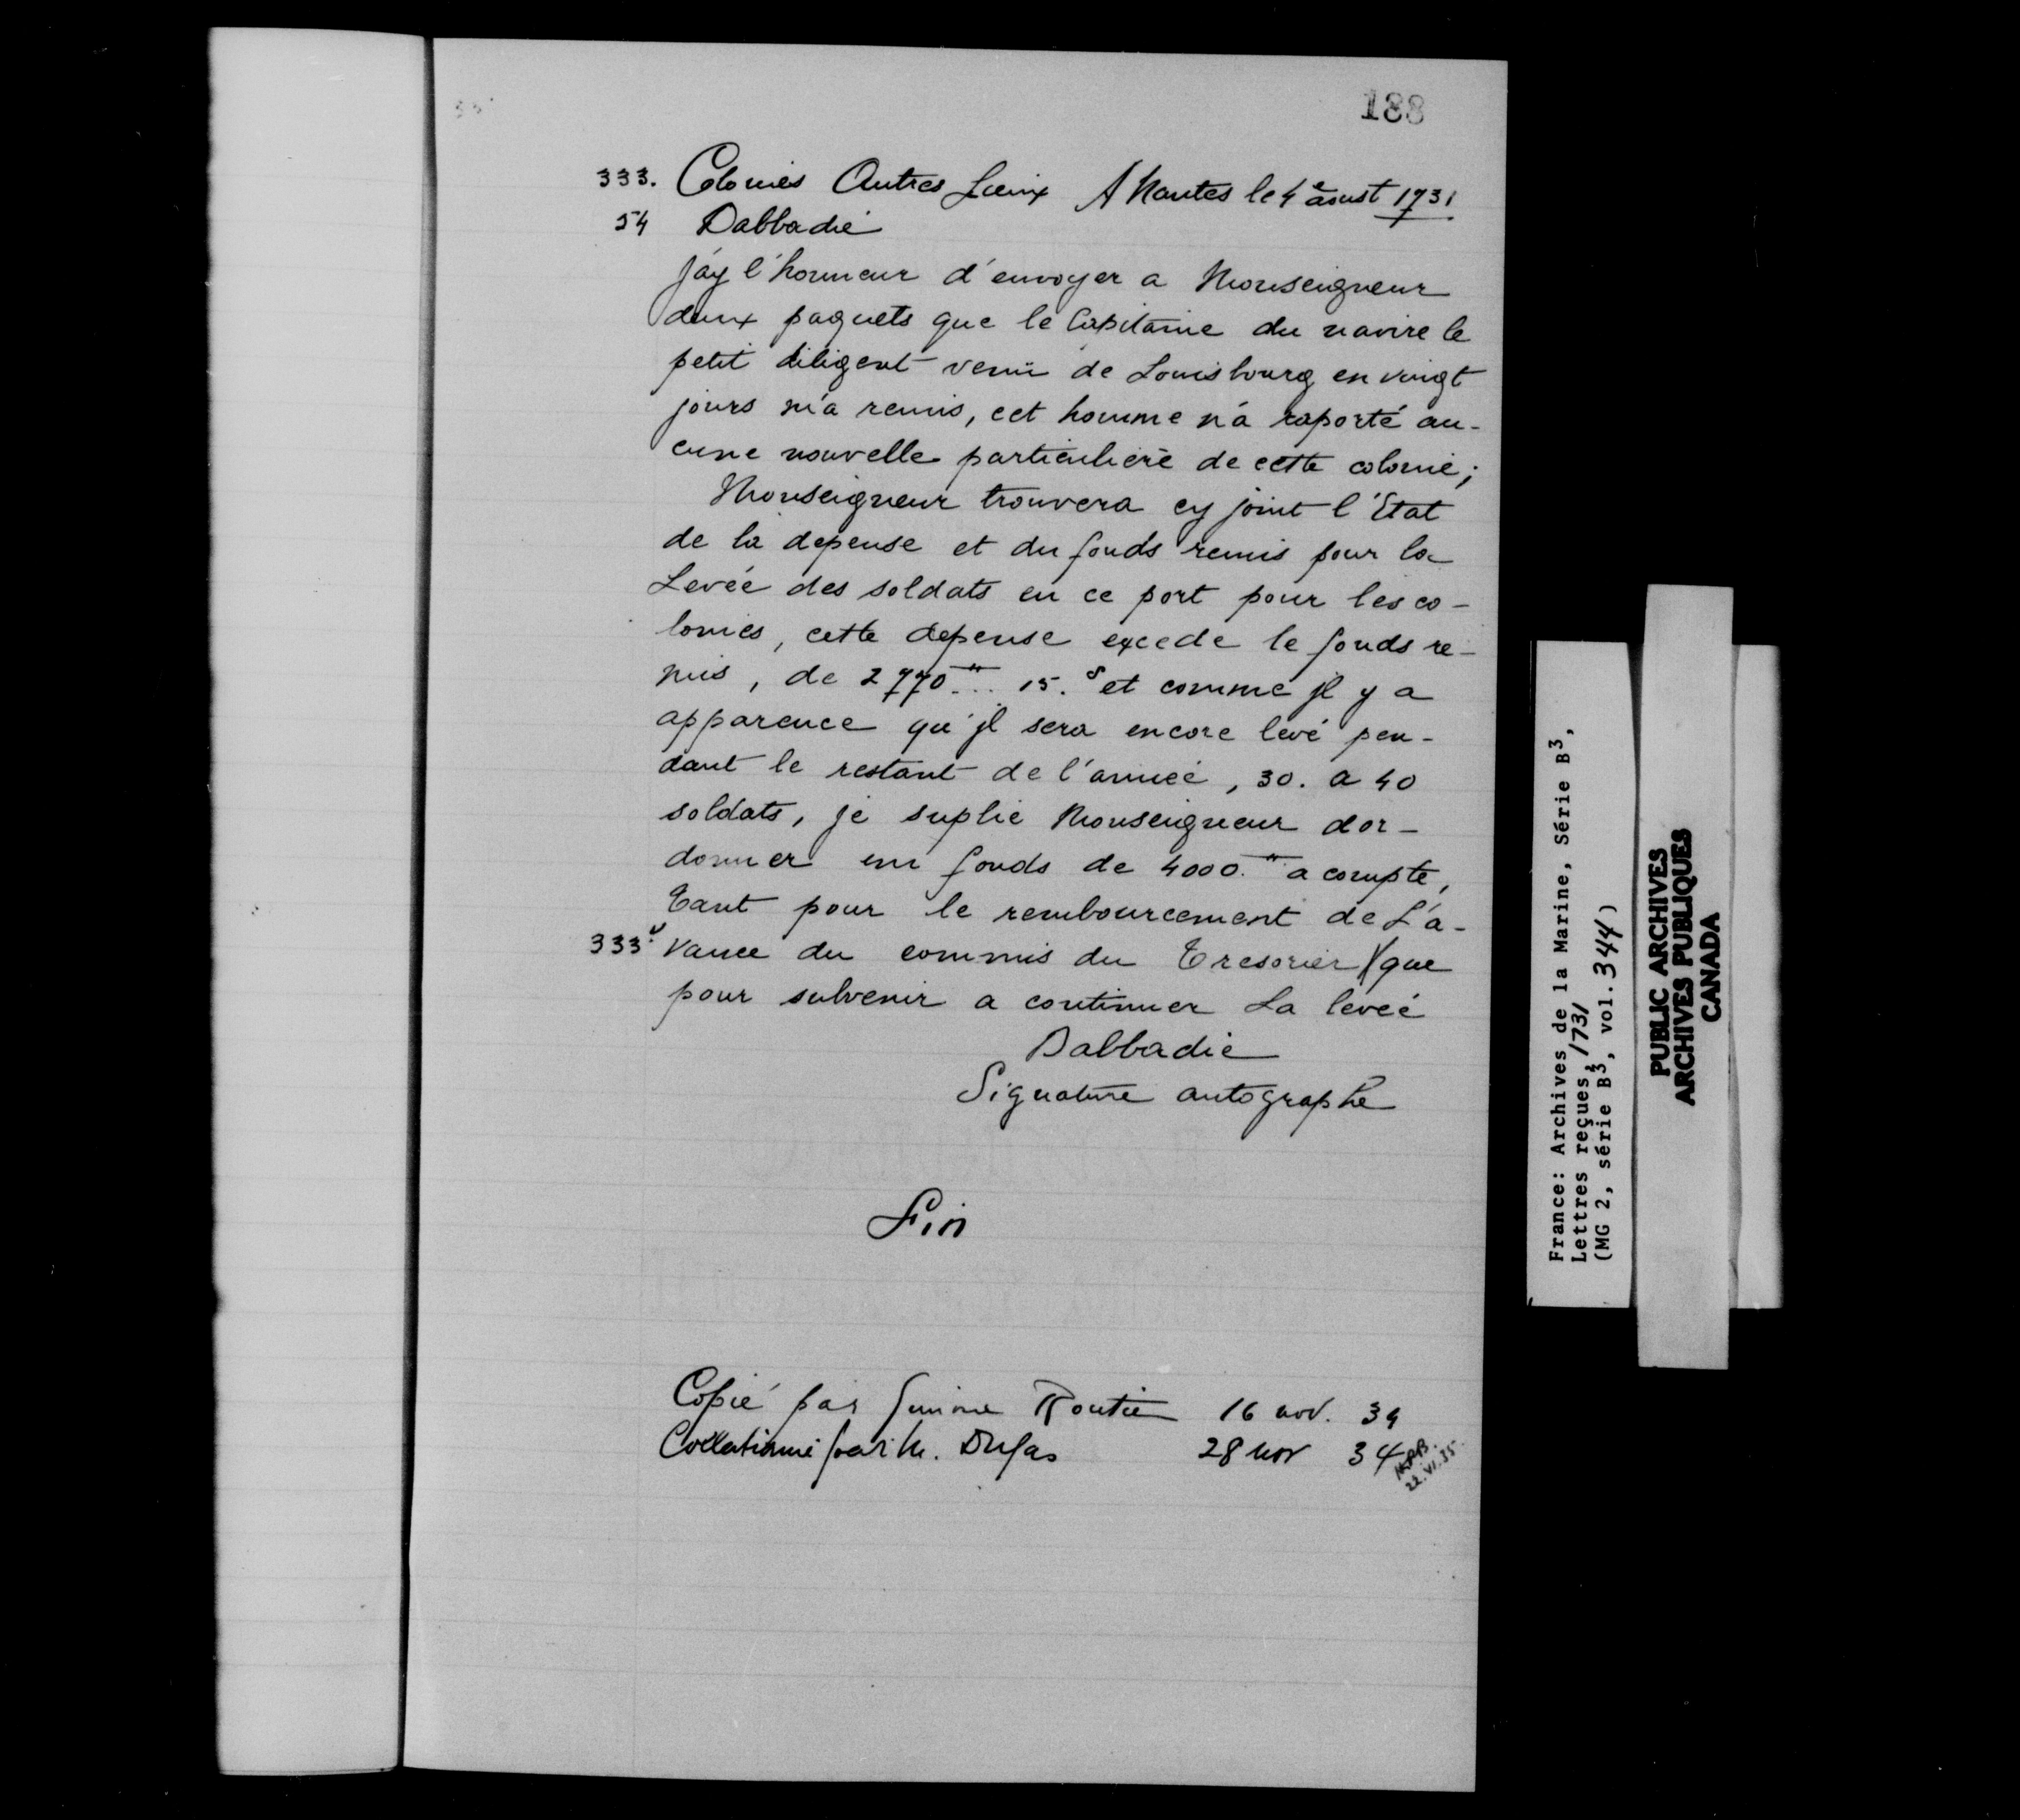 188
333. Colonies Autres Lieux A Nantes le 4e aoust 1731
54 Dabbadie
J'ay l'honneur d'envoyer a Monseigneur
deux paquets que le Capitaine du navire le
petit diligent venu de Louisbourg en vingt
jours m'a remis, cet homme n'a raporté au-
cune nouvelle particulière de cette colonie;
Monseigneur trouvera cy joint l'Etat
de la depense et du fonds remis pour la
Levée des soldats en ce port pour les co-
lonies, cette depense excede le fonds re-
mis, de 2770.tt.. 15.s et comme jl y a
apparence qu'jl sera encore levé pen-
dant le restant de l'année, 30. a 40
soldats, je suplie Monseigneur d'or-
donner un fonds de 4000.tt a compte,
Tant pour le rembourcement de L'a-
333v vance du commis du Tresorier )(que
pour subvenir a continuer La levée
Dabbadie
Signature autographe
Fin
Copié par Routier 16 nov. 34
Collationné par M. Dufas 28 nov 34
22.VI.35
France: Archives de la Marine, Série B3,
Lettres reçues, 1731
(MG 2, série B3, vol. 344)
PUBLIC ARCHIVES
ARCHIVES PUBLIQUES
CANADA